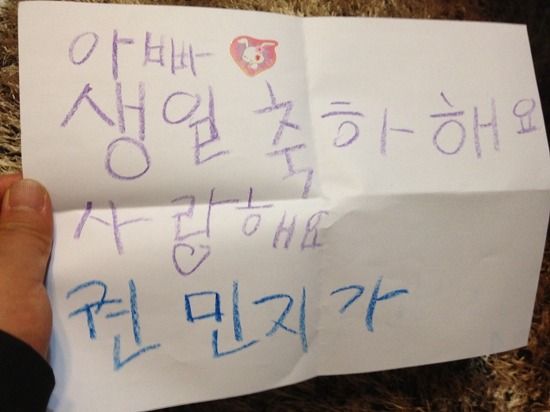 아빠
생일 축하해요
사랑해요
권민지가